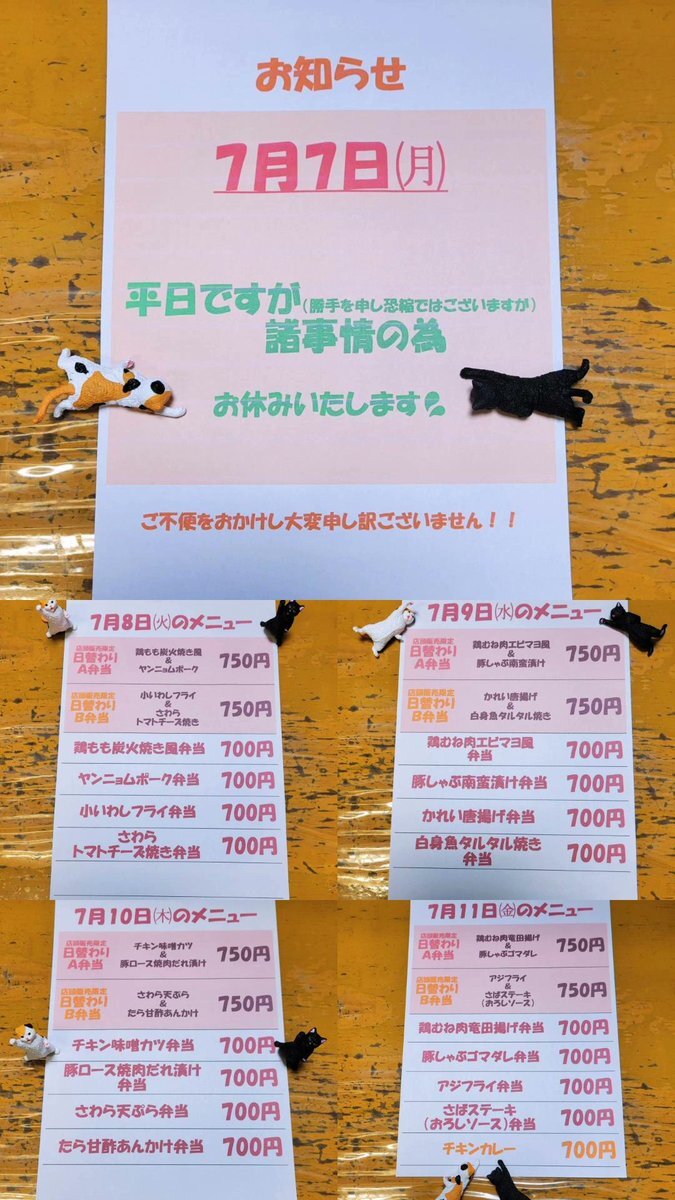 お知らせ
7月7日㈪
平日ですが(勝手を申し恐縮ではございますが)
諸事情の為
お休みいたします
ご不便をおかけし大変申し訳ございません！！
7月8日㈫のメニュー
店頭販売限定
日替わり
A弁当
鶏もも炭火焼き風
&
ヤンニョムポーク
750円
店頭販売限定
日替わり
B弁当
小いわしフライ
&
さわら
トマトチーズ焼き
750円
鶏もも炭火焼き風弁当 700円
ヤンニョムポーク弁当 700円
小いわしフライ弁当 700円
さわら
トマトチーズ焼き弁当 700円
7月9日㈬のメニュー
店頭販売限定
日替わり
A弁当
鶏むね肉エビマヨ風
&
豚しゃぶ南蛮漬け
750円
店頭販売限定
日替わり
B弁当
かれい唐揚げ
&
白身魚タルタル焼き
750円
鶏むね肉エビマヨ風
弁当 700円
豚しゃぶ南蛮漬け弁当 700円
かれい唐揚げ弁当 700円
白身魚タルタル焼き
弁当 700円
7月10日㈭のメニュー
店頭販売限定
日替わり
A弁当
チキン味噌カツ
&
豚ロース焼肉だれ漬け
750円
店頭販売限定
日替わり
B弁当
さわら天ぷら
&
たら甘酢あんかけ
750円
チキン味噌カツ弁当 700円
豚ロース焼肉だれ漬け
弁当 700円
さわら天ぷら弁当 700円
たら甘酢あんかけ弁当 700円
7月11日㈮のメニュー
店頭販売限定
日替わり
A弁当
鶏むね肉竜田揚げ
&
豚しゃぶゴマダレ
750円
店頭販売限定
日替わり
B弁当
アジフライ
&
さばステーキ
(おろしソース)
750円
鶏むね肉竜田揚げ弁当 700円
豚しゃぶゴマダレ弁当 700円
アジフライ弁当 700円
さばステーキ
(おろしソース)弁当 700円
チキンカレー 700円